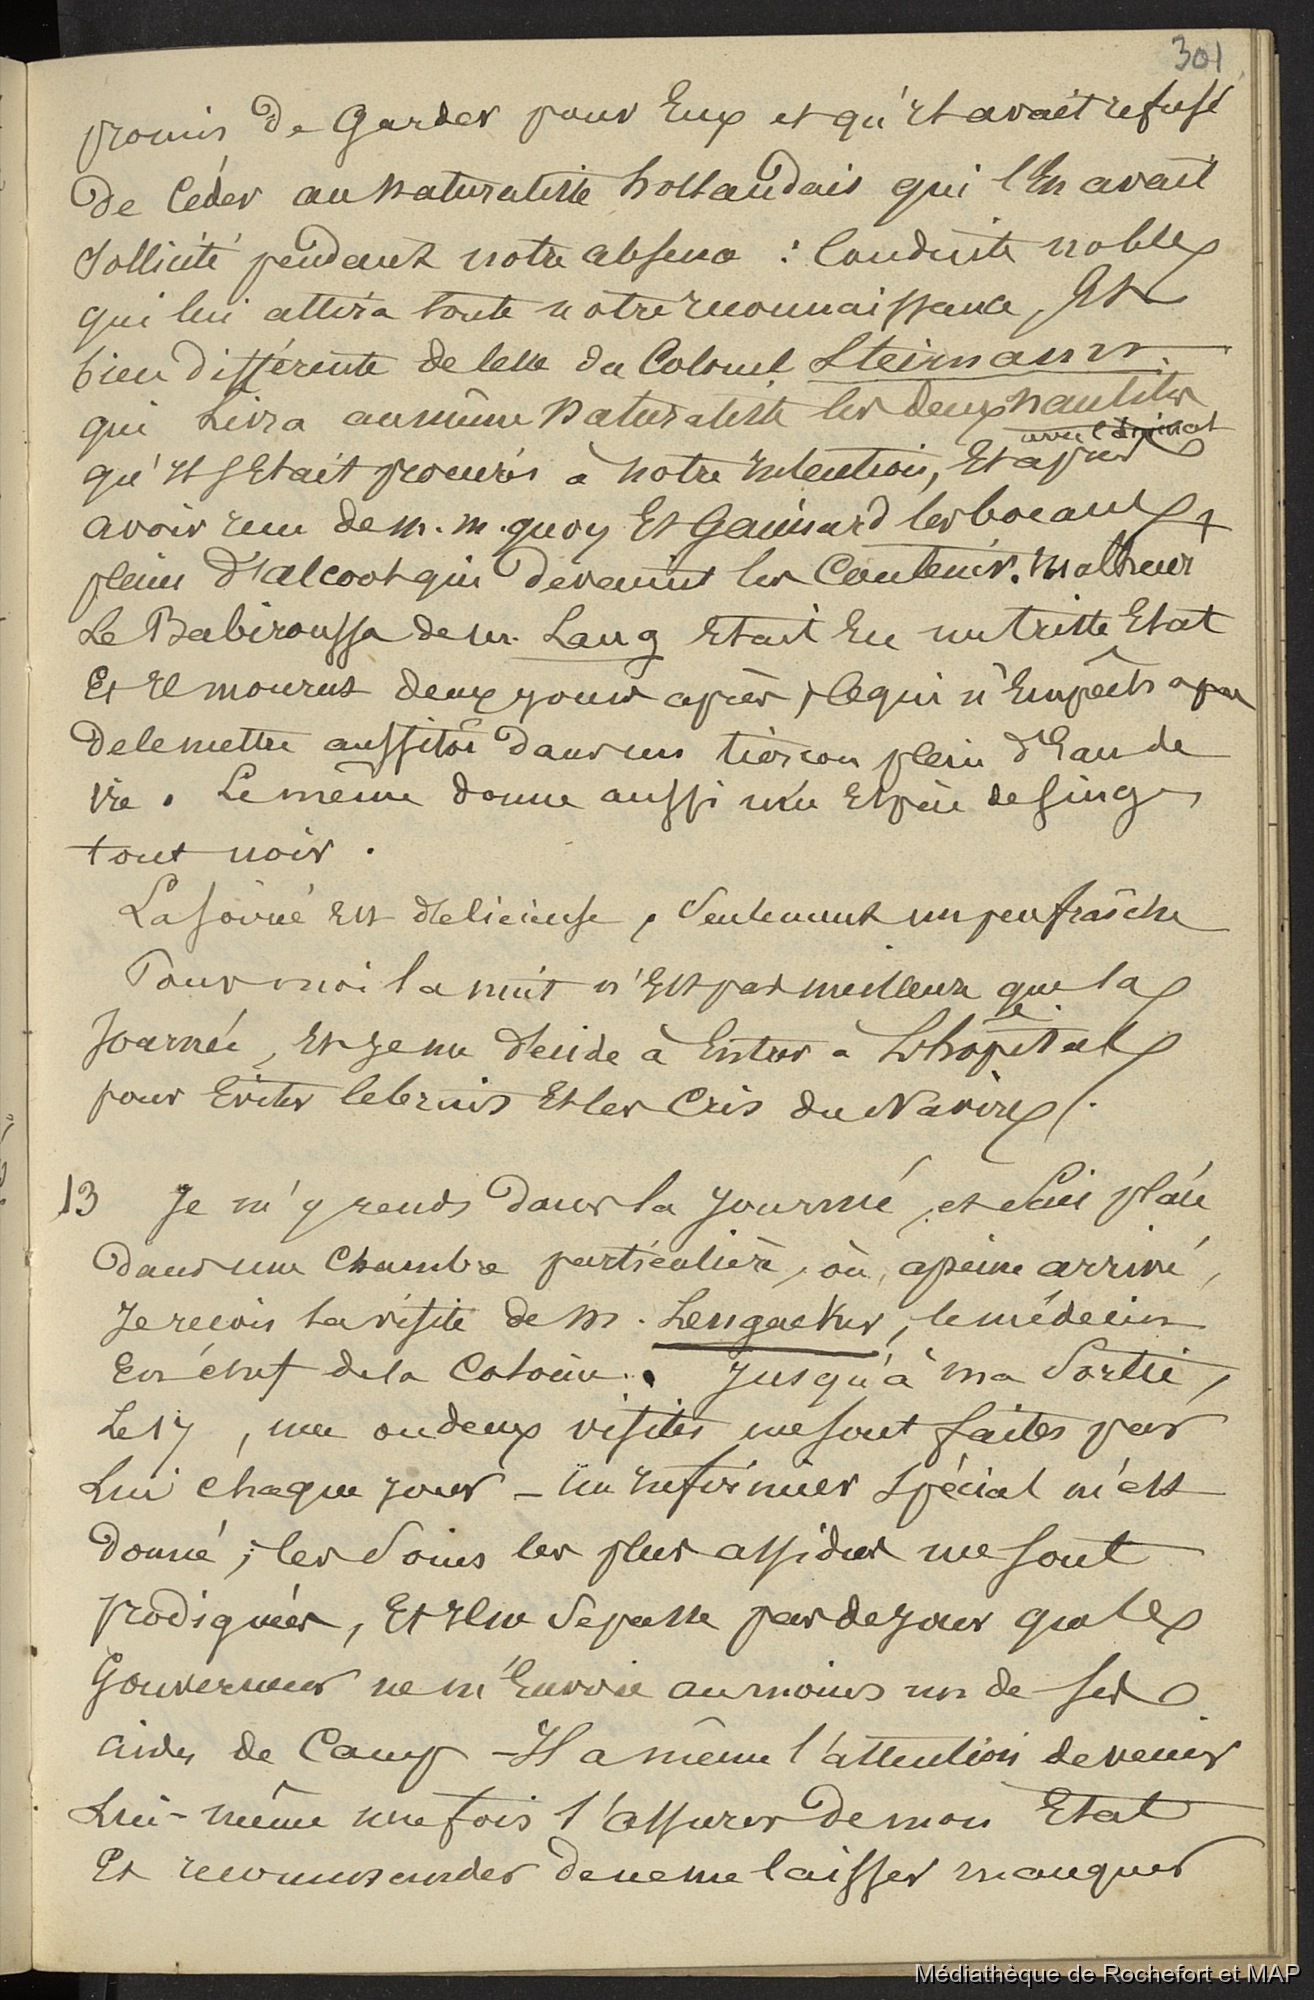 301
promis de garder pour Eux et qu'il avait refusé
de céder au naturaliste hollandais qui l'En avait
sollicité pendant notre absence : Conduite noble
qui lui attira toute notre reconnaissance, Et
bien différente de celle du Colonel Steimann.
qui Livra au même naturaliste les deux nautiles
avec l'animal
qu'il s'Etait procurés à notre intention, Et après
avoir reçu de m. m. quoy Et Gaimard les bocaux
pleins d'alcool qui devaient les Contenir.
Le Babiroussa de m. Lang Etait En un triste Etat
Et Il mourut deux jours après, Ce qui n'Empêcha pas
de le mettre aussitôt dans un tierçon plein d'Eau de
vie. Le même donne aussi une Espèce de singe,
tout noir.
La soirée Est délicieuse, seulement un peu fraîche
Pour moi la nuit n'Est pas meilleure que la
journée, Et je me décide à Entrer à L'hopital
pour Eviter le bruit Et les Cris du Navire.
13 Je m'y rends dans la journée, et suis placé
dans une Chambre particulière, où, à peine arrivé,
Je reçois la visite de M. Lengacker, le médecin
En chef de la Colonie. Jusqu'à ma sortie,
Le 17, une ou deux visites me sont faites par
Lui chaque jour – un Infirmier spécial m'est
donné ; les soins les plus assidus me sont
prodigués, Et Il ne se passe pas de jour que le
Gouverneur ne m'Envoie au moins un de ses
aides de Camp – Il a même l'attention de venir
Lui-même une fois s'assurer de mon Etat
Et recommander de ne me laisser manquer
Médiathèque de Rochefort et MAP